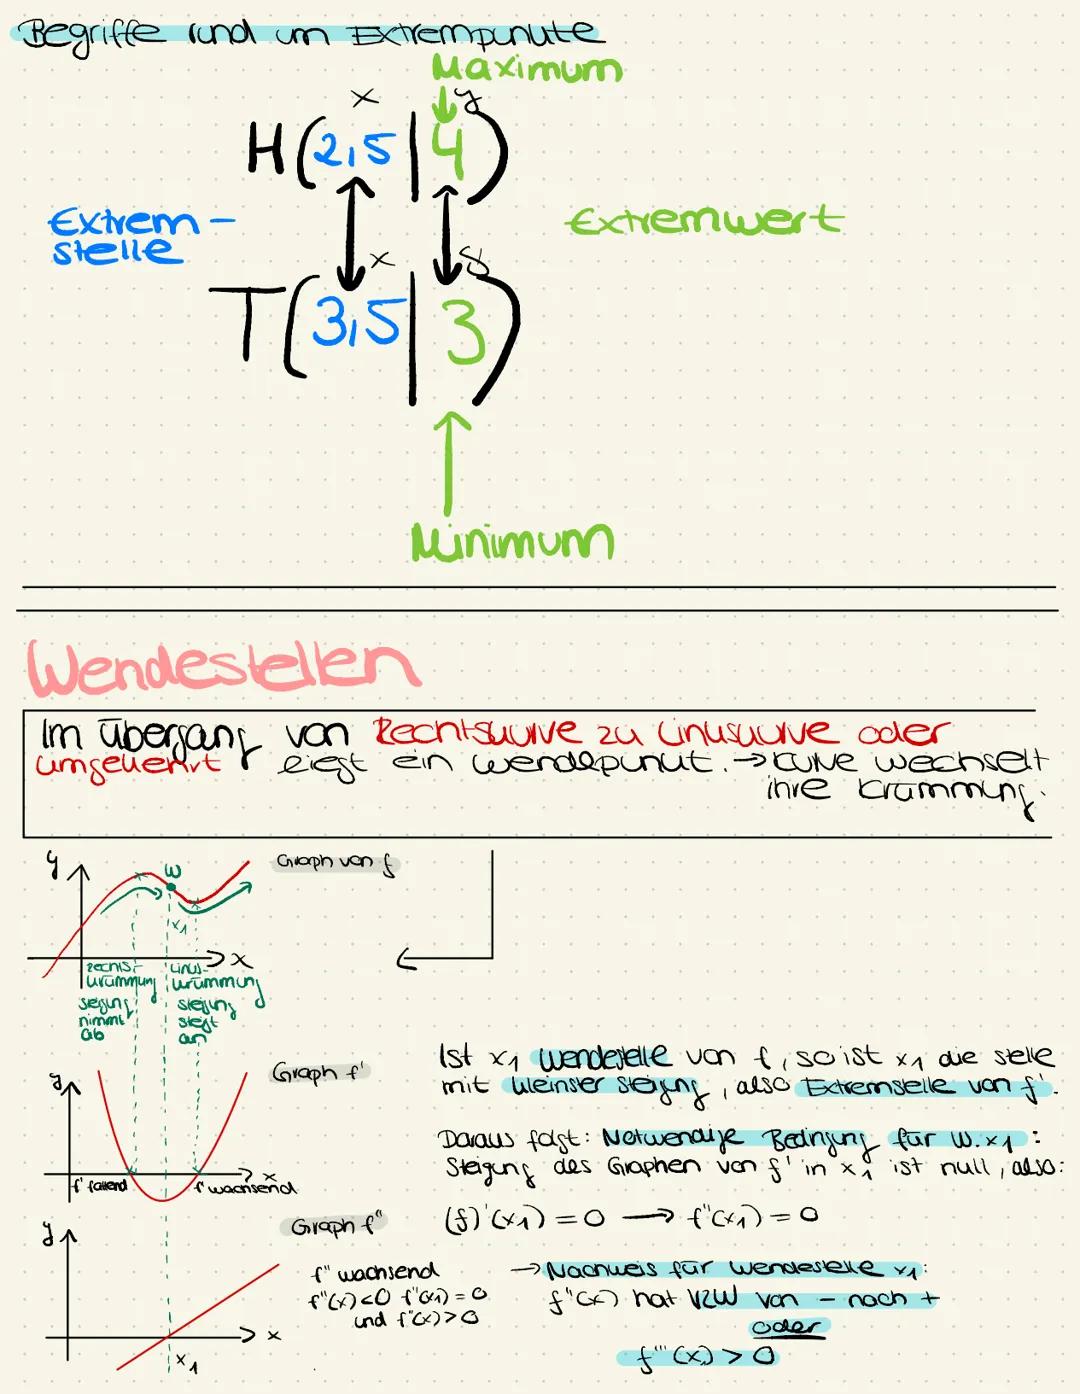 Begriffe rund um Extrempunkte
Maximum
x y
H(2,5 | 4)
Extrem-
stelle
Extremwert
x y
T(3,5 | 3)
Minimum
Wendestellen
Im Übergang von Rechtskurve zu Linkskurve oder
umgekehrt liegt ein Wendepunkt. → Kurve wechselt
ihre Krümmung.
y
W
Graph von f
x1
x
Rechts-
krümmung
Steigung
nimmt
ab
Links-
krümmung
Steigung
steigt
an
y
Graph f'
x
f' fallend
f' wachsend
Ist x1 Wendestelle von f, so ist x1 die Stelle
mit kleinster Steigung, also Extremstelle von f'.
Daraus folgt: Notwendige Bedingung für W. x1:
Steigung des Graphen von f' in x1 ist null, also:
(f)'(x1) = 0 → f''(x1) = 0
y
Graph f''
f'' wachsend
f''(x) < 0 f''(x1) = 0
und f''(x) > 0
x
x1
→ Nachweis für Wendestelle x1:
f''(x) hat VZW von - nach +
oder
f'''(x) > 0